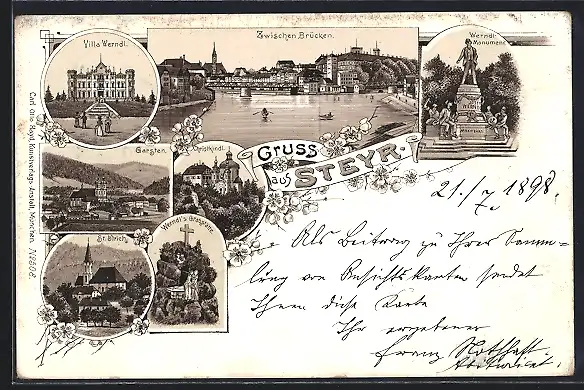 Villa Werndl.
Zwischen Brücken.
Werndl-
Monument
Garsten.
Christkindl.
Gruss
aus STEYR.
St. Ulrich.
Werndl's Grabstätte.
Carl Otto Hayd, Kunstverlags-Anstalt, München. No 606.
21./7. 1898.
Als Beitrag zu Ihrer Samm-
lung von Ansichtskarten sendet
Ihnen diese Karte
Ihr ergebener
Franz Notthaft